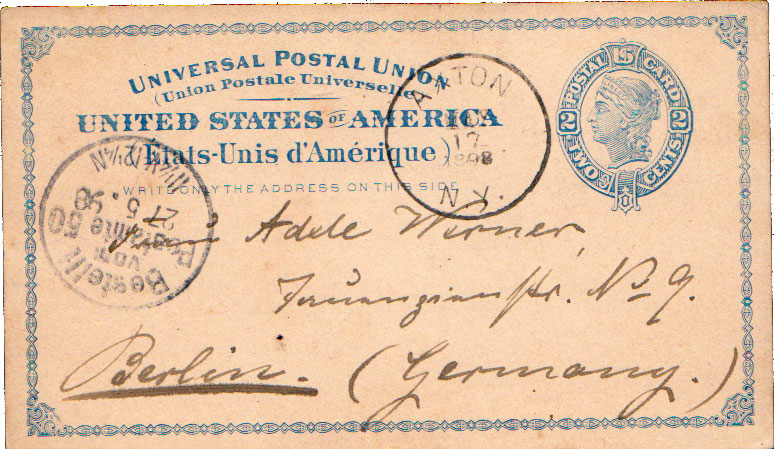 UNIVERSAL POSTAL UNION
(Union Postale Universelle)
UNITED STATES OF AMERICA
(États-Unis d'Amérique)
WRITE ONLY THE ADDRESS ON THIS SIDE
POSTAL CARD
2 TWO CENTS 2
17
1898
N.
Bestellt
vom
Postamte 50
27
5. 98
Adele Werner
Tauenzienstr. No 9.
Berlin. (Germany.)